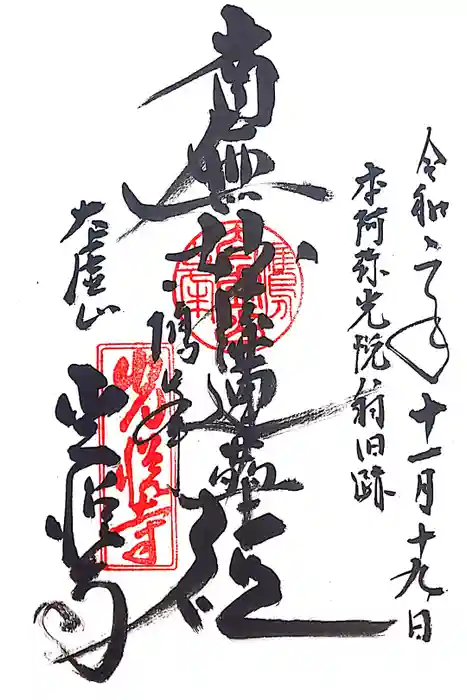 令和二年十一月十九日
本阿弥光悦翁旧跡
南無妙法蓮華経
鷹峯
大虚山
光悦寺
光悦寺